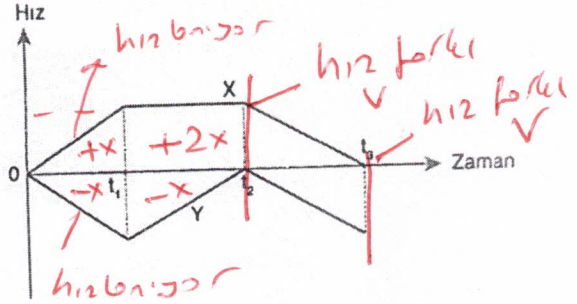 Hız
hız bnıyor
X
hız farkı
V
hız farkı
V
+x
+2x
t₃
0
Zaman
-x
t₁
-x
t₂
Y
hız bnıyor